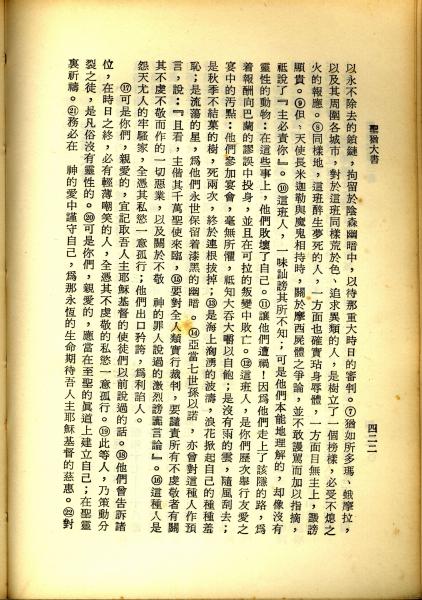 聖猶大書
四二二
以永不除去的鎖鏈，拘留於陰森幽暗中，以待那重大時日的審判。⑦猶如所多瑪、蛾摩拉，
以及其周圍各城市，對於這班同樣荒於色、追求異類的人，是樹立了一個榜樣，必受不熄之
火的報應。⑧同樣地，這班醉生夢死的人，一方面也確實玷身辱體，一方面目無主上，譭謗
顯貴。⑨但、天使長米迦勒與魔鬼相持時，關於摩西屍體之爭論，並不敢謾罵而加以指摘，
祗說了『主必責你』。⑩這班人，一味訕謗其所不知；可是他們本能地理解的，却像沒有
靈性的動物：在這些事上，他們敗壞了自己。⑪讓他們遭禍！因爲他們走上了該隱的路，爲
着報酬向巴蘭的謬誤中投身，並且在可拉的叛變中敗亡。⑫這班人，是你們歷次舉行友愛之
宴中的汚點：他們參加宴會，毫無所懼，祗知大吞大嚼以自飽；是沒有雨的雲，隨風刮去；
是秋季不結菓的樹，死了兩次，終於連根拔掉；⑬是海上洶湧的波濤，浪花掀起自己的種種羞
恥；是流蕩的星，爲他們永世保留着漆黑的幽暗。⑭亞當七世孫以諾，亦曾對這種人作預
言，說：『且看，主偕其千萬聖使來臨，⑮要對全人類實行裁判，要譴責所有不虔敬者有關
其不虔不敬而作的一切惡業，以及關於不敬　神的罪人說過的激烈謗讟言論』。⑯這種人是
怨天尤人的牢騷家，全憑其私慾一意孤行；他們出口矜誇，爲利諂人。
⑰可是你們，親愛的，宜記取吾人主耶穌基督的使徒們以前說過的話。⑱他們曾告訴諸
位，在時日之終，必有輕薄嘲笑的人，全憑其不虔敬的私慾一意孤行。⑲此等人，乃策動分
裂之徒，是凡俗沒有靈性的。⑳可是你們，親愛的，應當在至聖的眞道上建立自己；在聖靈
裏祈禱。㉑務必在　神的愛中謹守自己，爲那永恆的生命期待吾人主耶穌基督的慈惠。㉒對